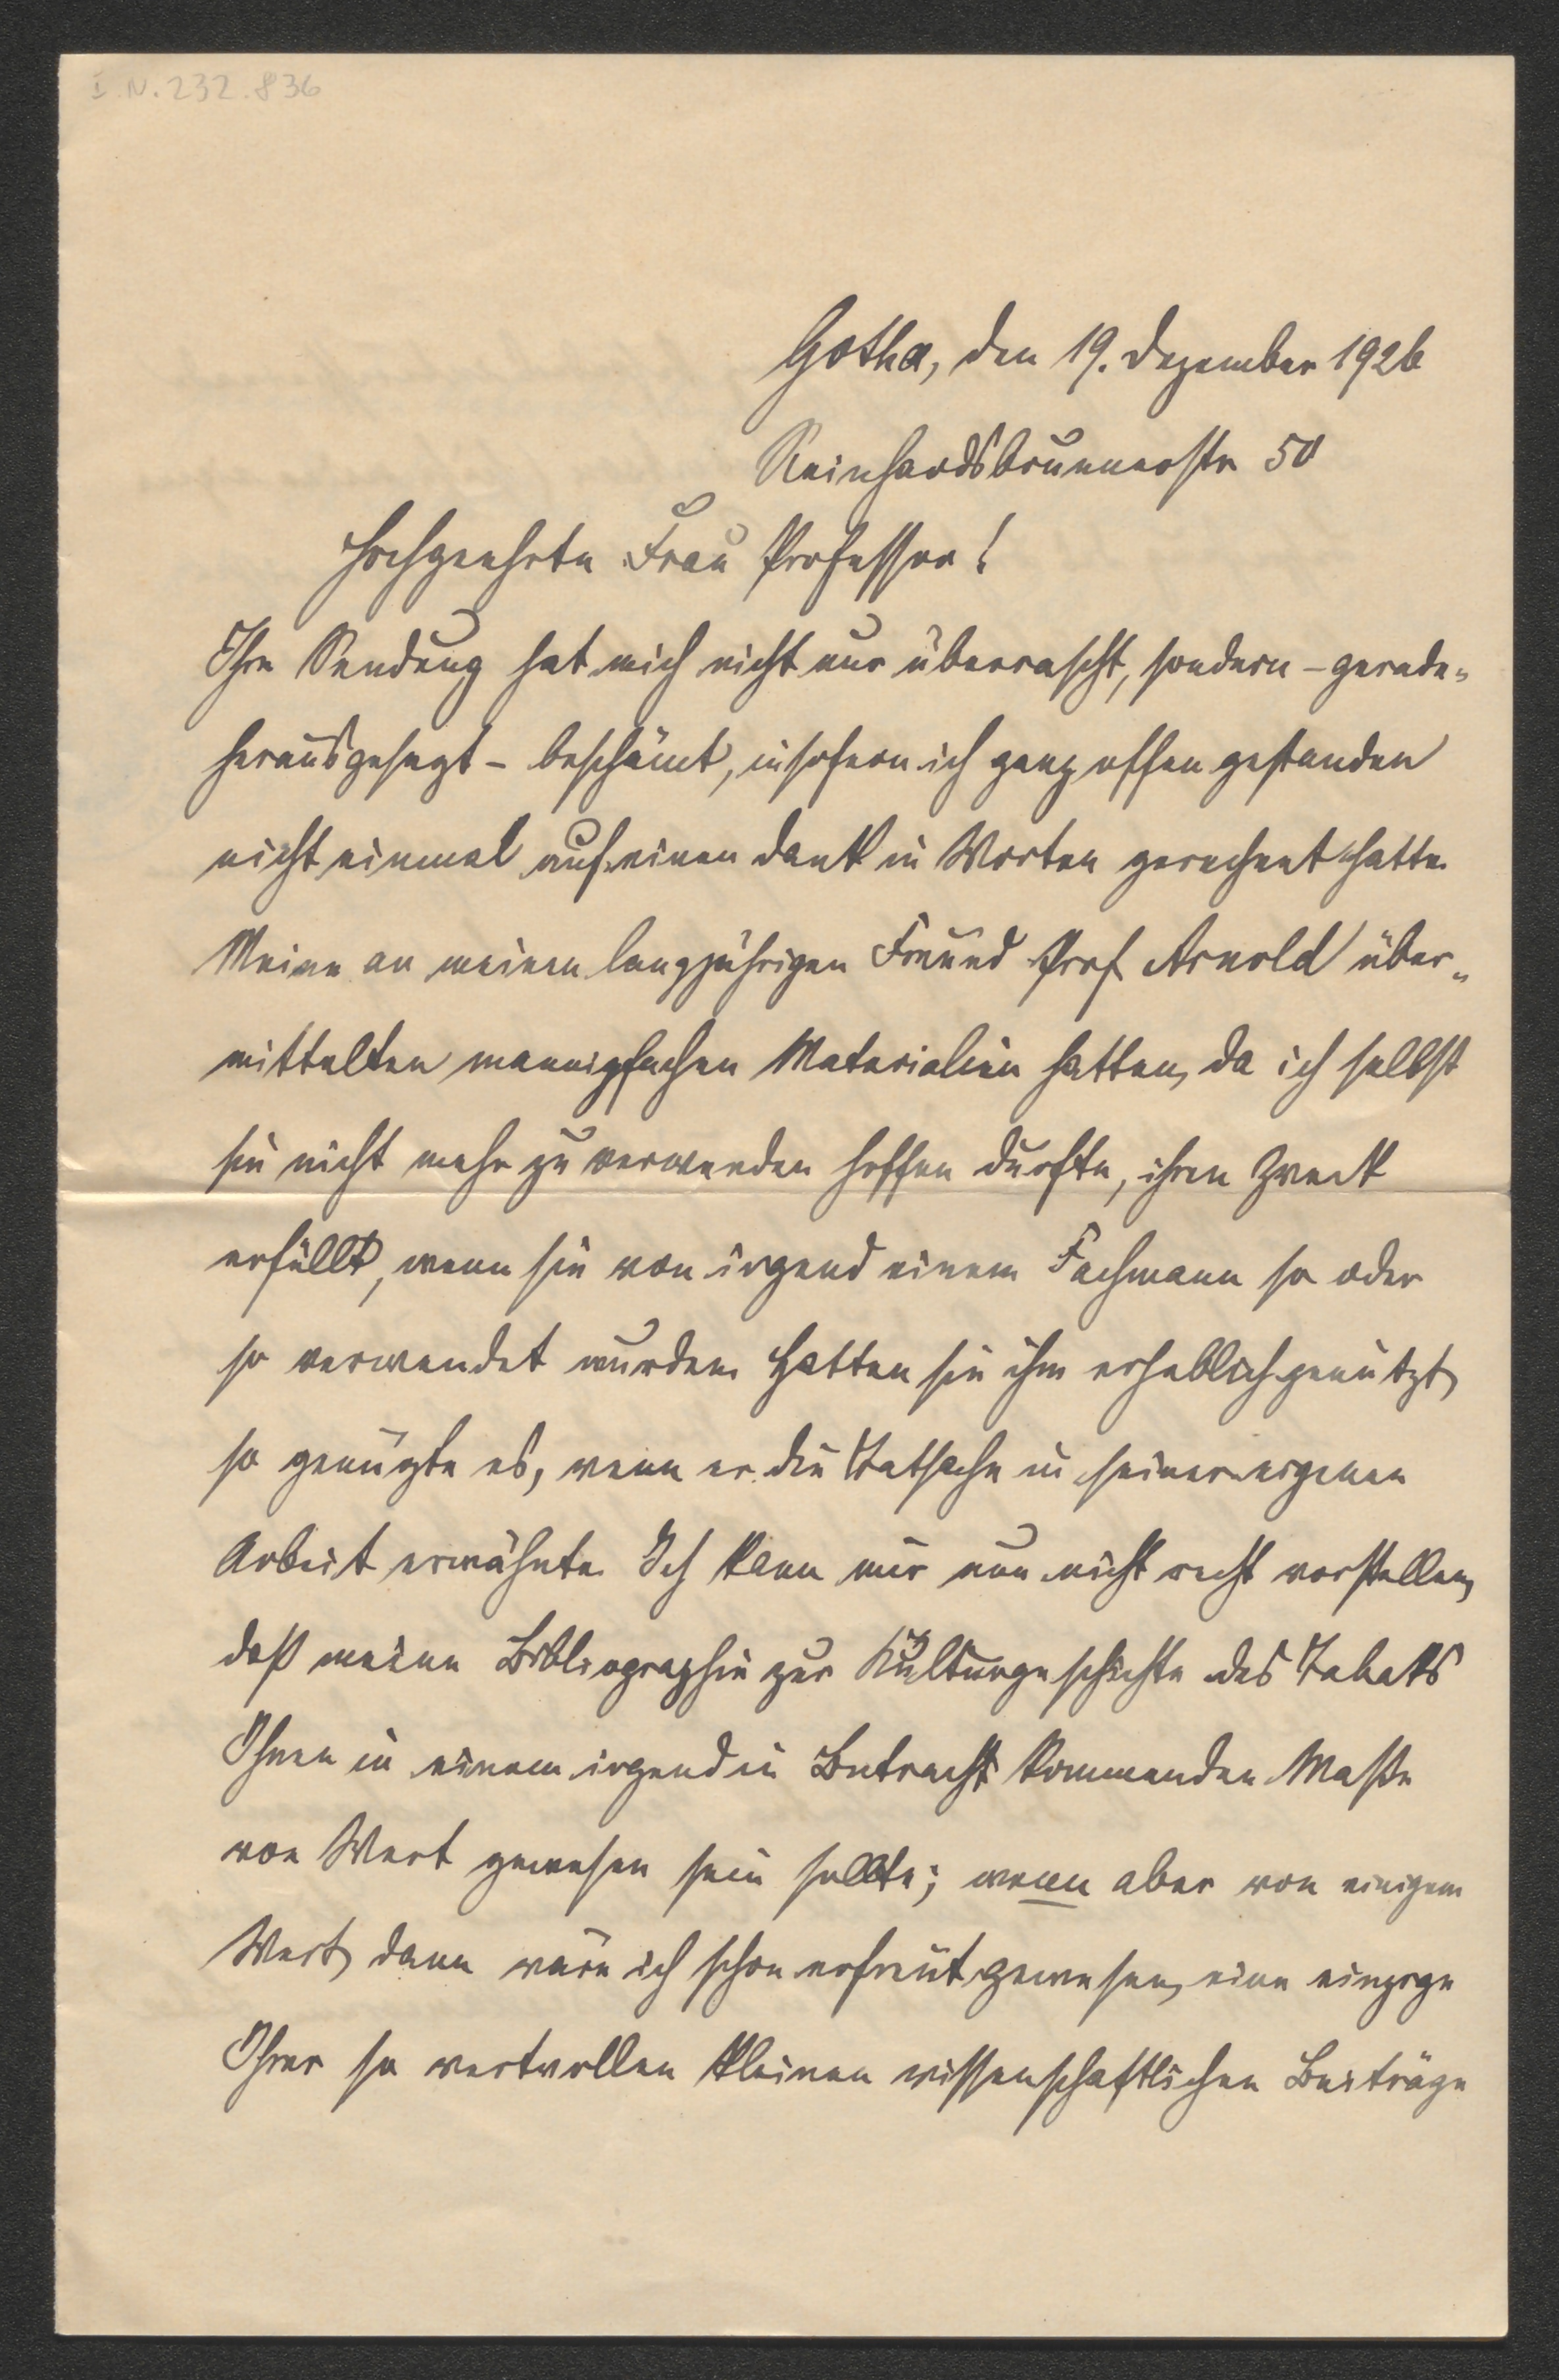 I.N. 232.836
Gotha, den 19. Dezember 1926
Reinhardsbrunnerstr 50
Hochgeehrte Frau Professor!
Ihre Sendung hat mich nicht nur überrascht, sondern – gerade-
herausgesagt – beschämt, insofern ich ganz offen gestanden
nicht einmal auf einen Dank in Worten gerechnet hatte.
Meine an meinen langjährigen Freund Prof Arnold über-
mittelten mannigfachen Materialien hatten, da ich selbst
sie nicht mehr zu verwenden hoffen durfte, ihren Zweck
erfüllt, wenn sie von irgend einem Fachmann so oder
so verwendet wurden. Hatten sie ihm erheblich genützt,
so genügte es, wenn er die Tatsache in seiner eigenen
Arbeit erwähnte. Ich kann mir nun nicht recht vorstellen,
daß meine Bibliographie zur Kulturgeschichte des Tabaks
Ihnen in einem irgend in Betracht kommenden Maße
von Wert gewesen sein sollte; wenn aber von einigem
Wert, dann wäre ich schon erfreut gewesen, eine einzige
Ihrer so wertvollen kleinen wissenschaftlichen Beiträge